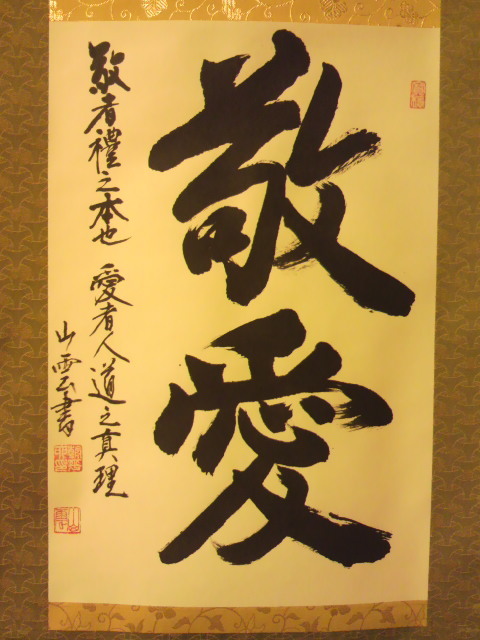 敬愛
敬者禮之本也 愛者人道之真理
山雲書